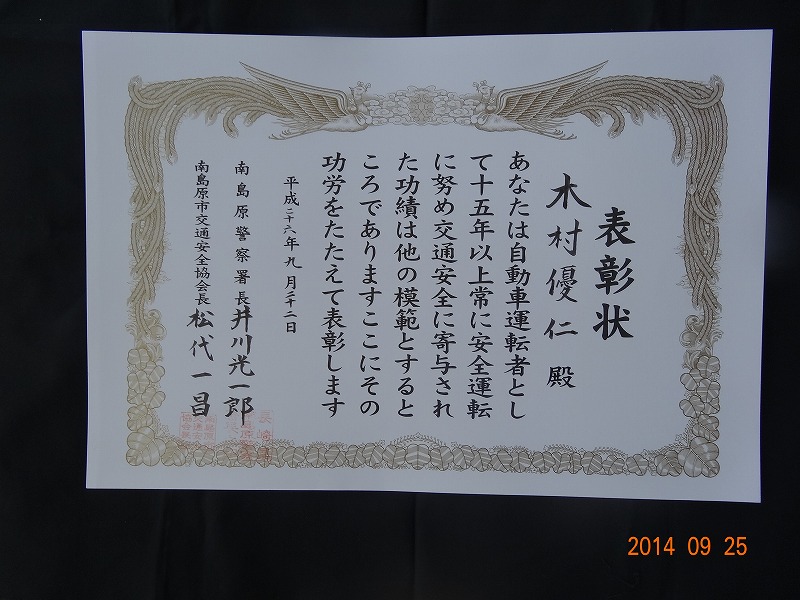 表彰状
木村優仁 殿
あなたは自動車運転者とし
て十五年以上常に安全運転
に努め交通安全に寄与され
た功績は他の模範とすると
ころでありますここにその
功労をたたえて表彰します
平成二十六年九月二十二日
南島原警察署長 井川光一郎
南島原市交通安全協会長 松代一昌
2014 09 25